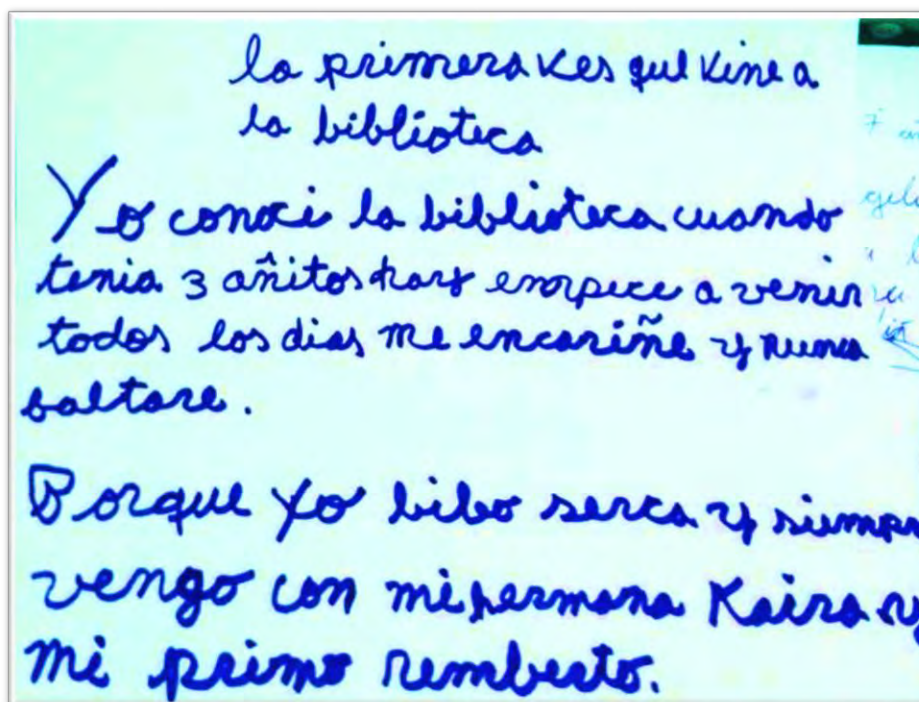 la primera ves que vine a
la biblioteca
Yo conoci la biblioteca cuando
tenia 3 añitos hay empece a venir
todos los dias me encariñe y nunca
faltare.
Porque yo bibo serca y siempr
vengo con mi hermana Kaira y
mi primo remberto.